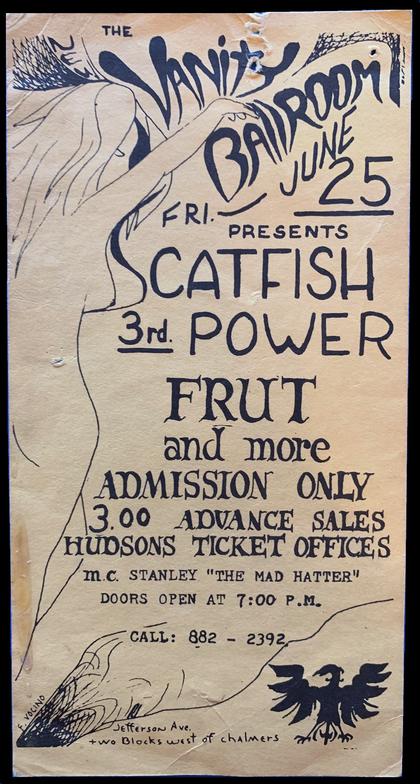 THE
NEW
VANITY
BALLROOM
JUNE
FRI. 25
PRESENTS
CATFISH
3rd. POWER
FRUT
and more
ADMISSION ONLY
3.00 ADVANCE SALES
HUDSONS TICKET OFFICES
m.c. STANLEY "THE MAD HATTER"
DOORS OPEN AT 7:00 P.M.
CALL: 882 - 2392
Jefferson Ave.
two Blocks west of chalmers